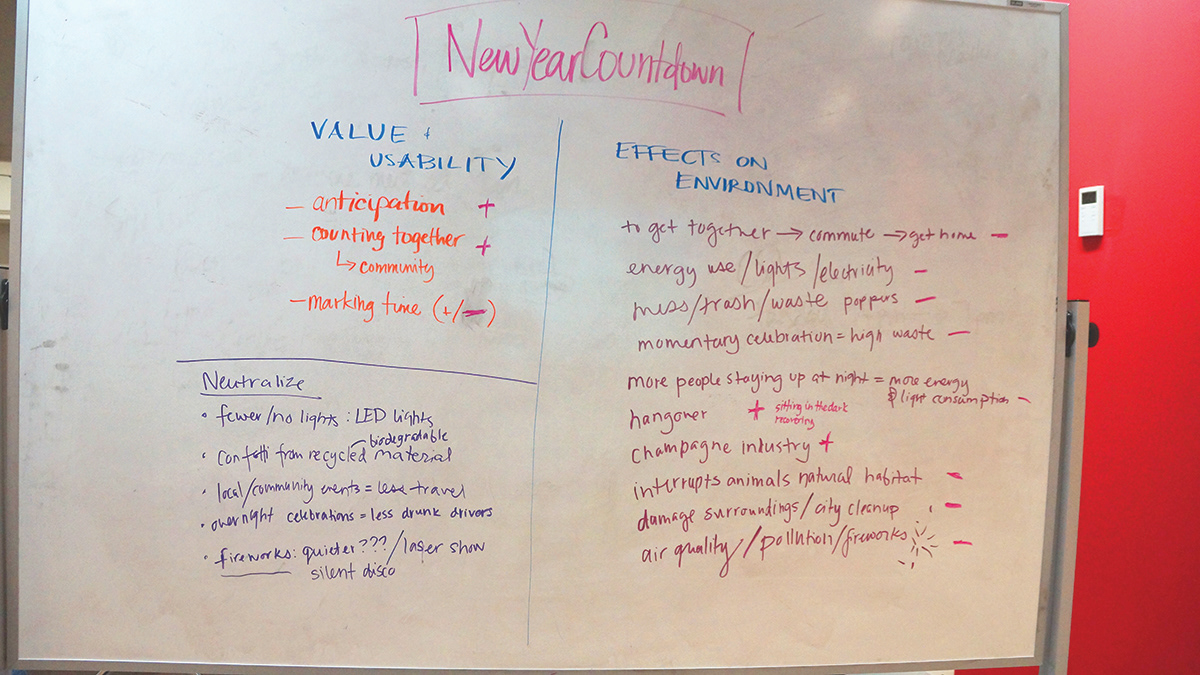 NewYearCountdown
VALUE +
USABILITY
— anticipation +
— counting together +
↳ community
— marking time (+/—)
Neutralize
• fewer/no lights : LED lights
biodegradable
• confetti from recycled material
• local/community events = less travel
• overnight celebrations = less drunk drivers
• fireworks: quieter???/laser show
silent disco
EFFECTS ON
ENVIRONMENT
to get together → commute → get home —
energy use/lights/electricity —
mess/trash/waste poppers —
momentary celebration = high waste —
more people staying up at night = more energy
& light consumption —
hangover + sitting in the dark
recovering
champagne industry +
interrupts animals natural habitat —
damage surroundings/city cleanup —
air quality/pollution/fireworks —